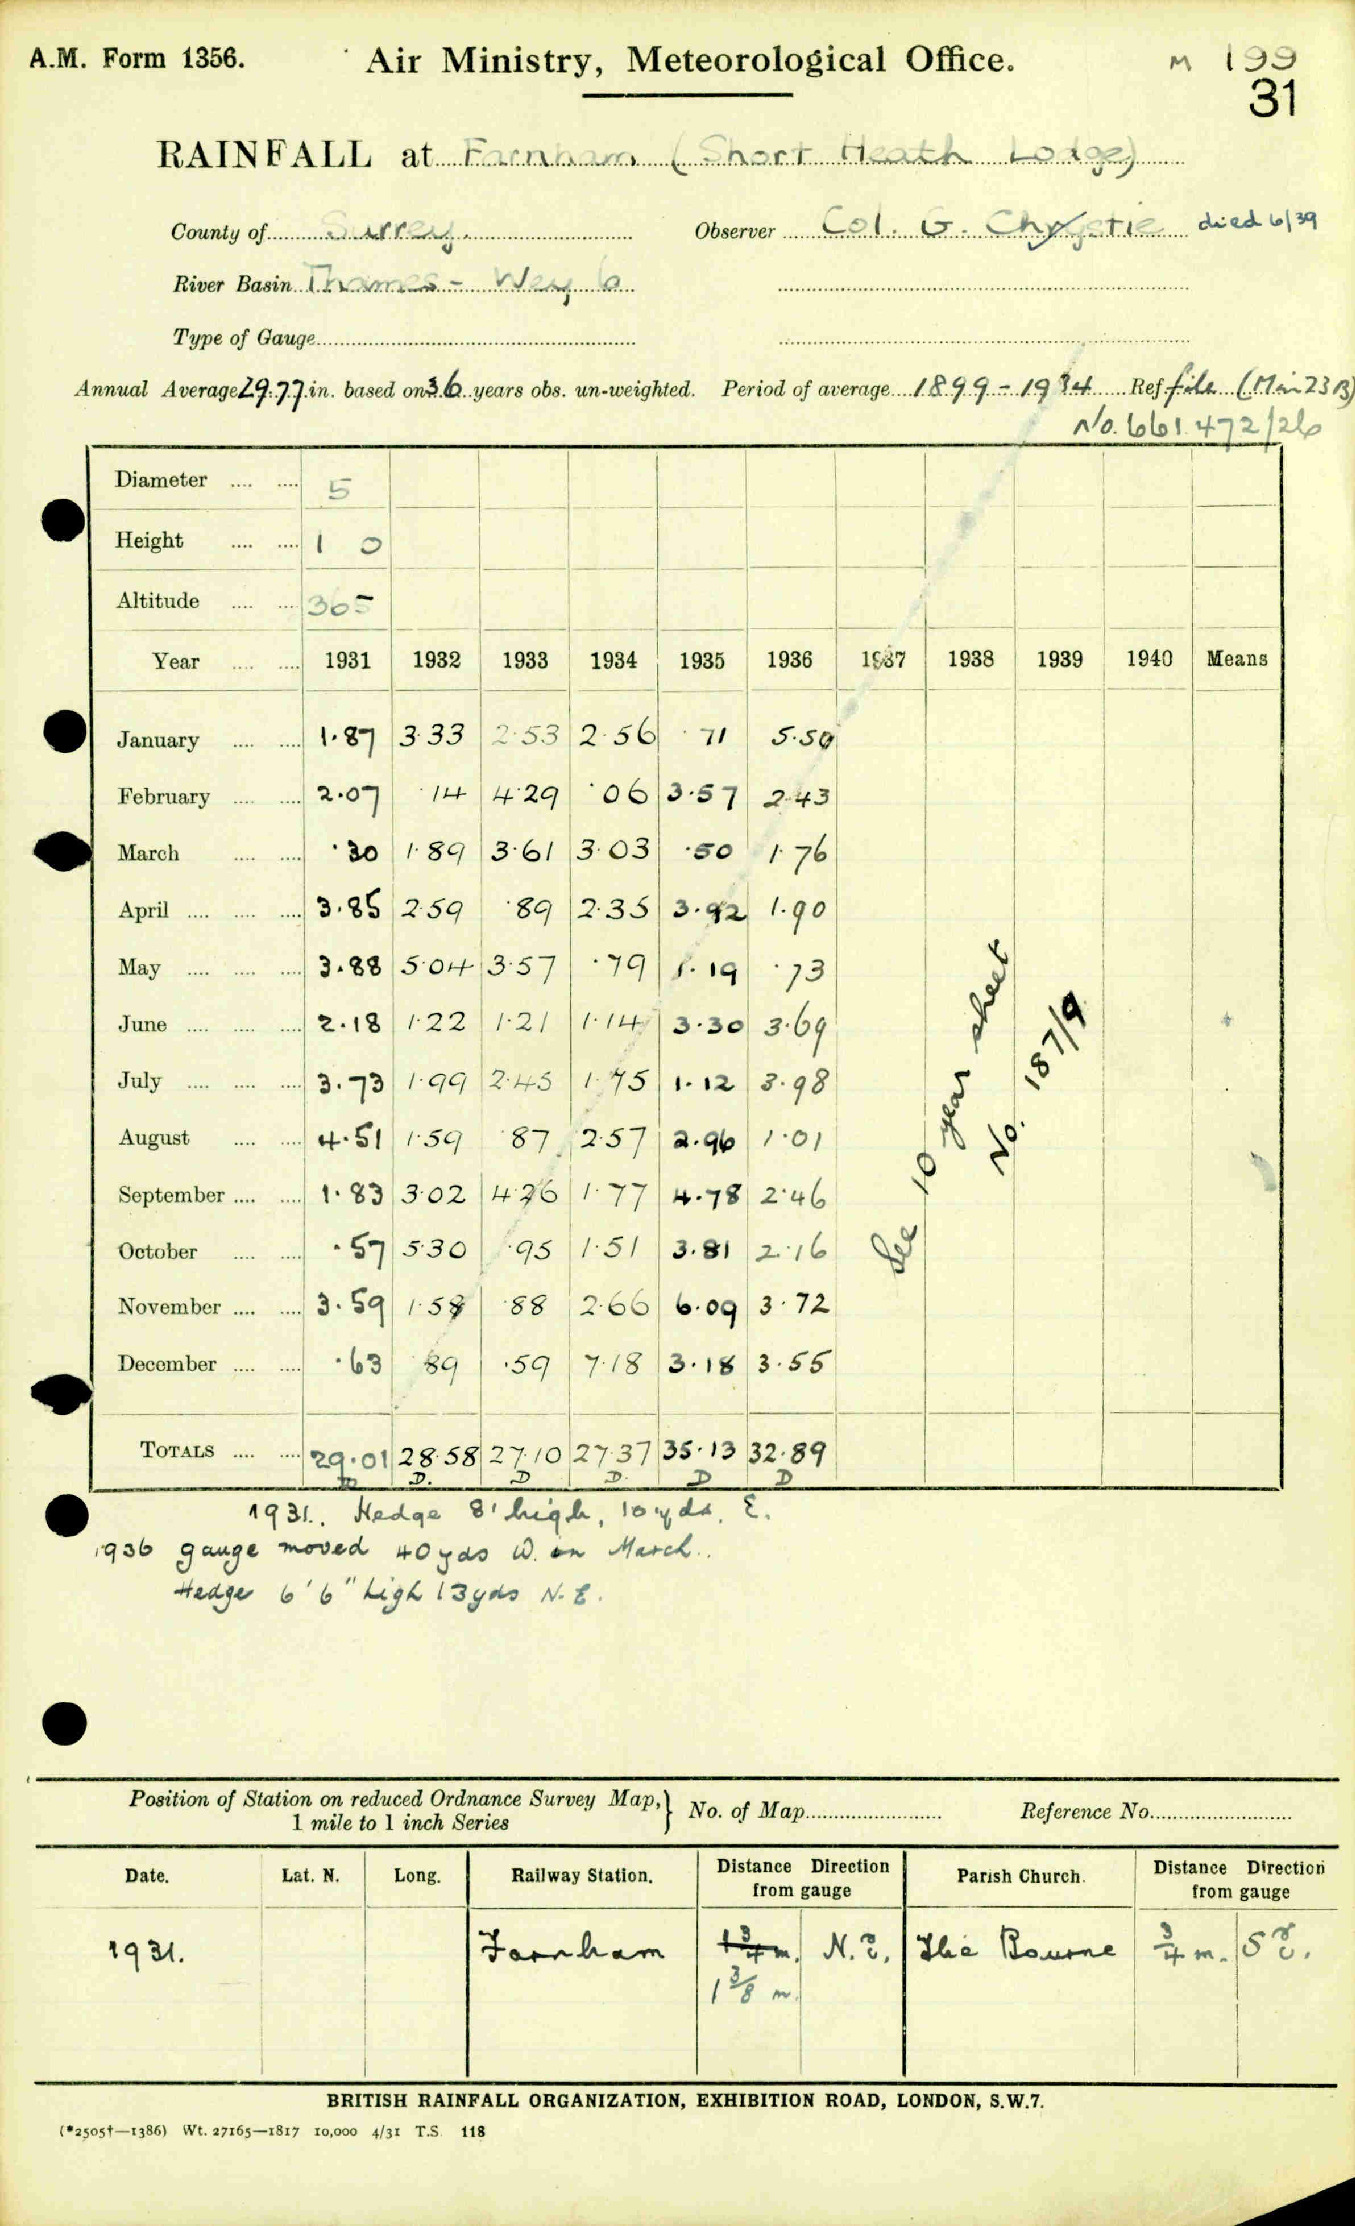 A.M. Form 1356. Air Ministry, Meteorological Office. M 199
31
RAINFALL at Farnham (Short Heath Lodge)
County of Surrey. Observer Col. G. Chrystie died 6/39
River Basin Thames - Wey 6
Type of Gauge
Annual Average 29.77 in. based on 36 years obs. un-weighted. Period of average 1899-1934 Ref. file (Min 23B)
No. 661.472/26
Diameter 5
Height 1 0
Altitude 365
Year 1931 1932 1933 1934 1935 1936 1937 1938 1939 1940 Means
January 1.87 3.33 2.53 2.56 .71 5.50
February 2.07 .14 4.29 .06 3.57 2.43
March .30 1.89 3.61 3.03 .50 1.76
April 3.85 2.59 .89 2.35 3.92 1.90
May 3.88 5.04 3.57 .79 1.19 .73
June 2.18 1.22 1.21 1.14 3.30 3.69
July 3.73 1.99 2.45 1.75 1.12 3.98
August 4.51 1.59 .87 2.57 2.96 1.01
September 1.83 3.02 4.26 1.77 4.78 2.46
October .57 5.30 .95 1.51 3.81 2.16
November 3.59 1.58 .88 2.66 6.09 3.72
December .63 .89 .59 7.18 3.18 3.55
TOTALS 29.01 28.58 27.10 27.37 35.13 32.89
D D. D D. D D
See 10 year sheet
No. 187/9
1931. Hedge 8' high, 10 yds. E.
1936 gauge moved 40 yds W. in March.
Hedge 6' 6" high 13 yds N.E.
Position of Station on reduced Ordnance Survey Map, } No. of Map Reference No.
1 mile to 1 inch Series
Date. Lat. N. Long. Railway Station. Distance Direction from gauge Parish Church. Distance Direction from gauge
1931. Farnham 1 3/4 m. N.E. The Bourne 3/4 m. S E.
1 3/8 m.
BRITISH RAINFALL ORGANIZATION, EXHIBITION ROAD, LONDON, S.W.7.
(*2505†—1386) Wt. 27165—1817 10,000 4/31 T.S. 118